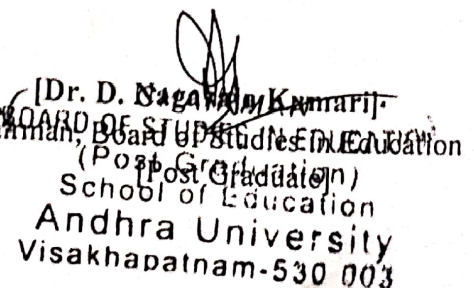 [Dr. D. Naga Kumari]
CHAIRMAN
BOARD OF STUDIES IN EDUCATION
rman, Board of Studies in Education
(Post Graduation)
[Post Graduate]
School of Education
Andhra University
Visakhapatnam-530 003